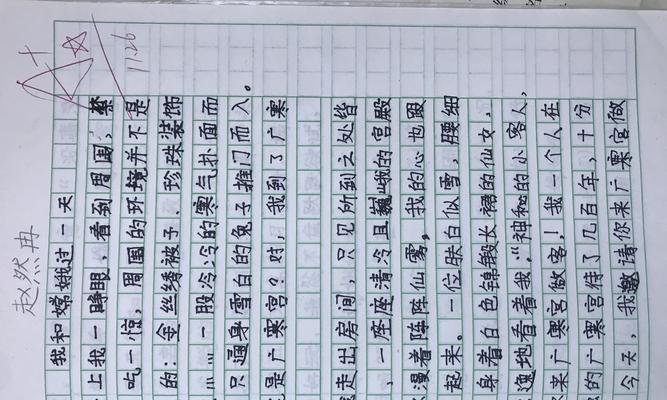 赵然冉
A+
11.26
我和嫦娥过一天
上我一睁眼，看到周围，禁
吃一惊，周围的环境并不是
的：金丝绣被子、珍珠装饰
…… 一股冷冷的寒气扑面而
只通身雪白的兔子推门而入。
是广寒宫？对，我到了广寒
走出房间，只见所到之处皆
，一座座清冷且巍峨的宫殿
漫着阵阵仙雾，我的心也跟
起来。一位肤白似雪，腰细
身着白色锦缎长裙的仙女，
逸地看着我，“神和的小客人，
来广寒宫做客！我一个人在
的广寒宫待了几百年，十分
今天，我邀请你来广寒宫做